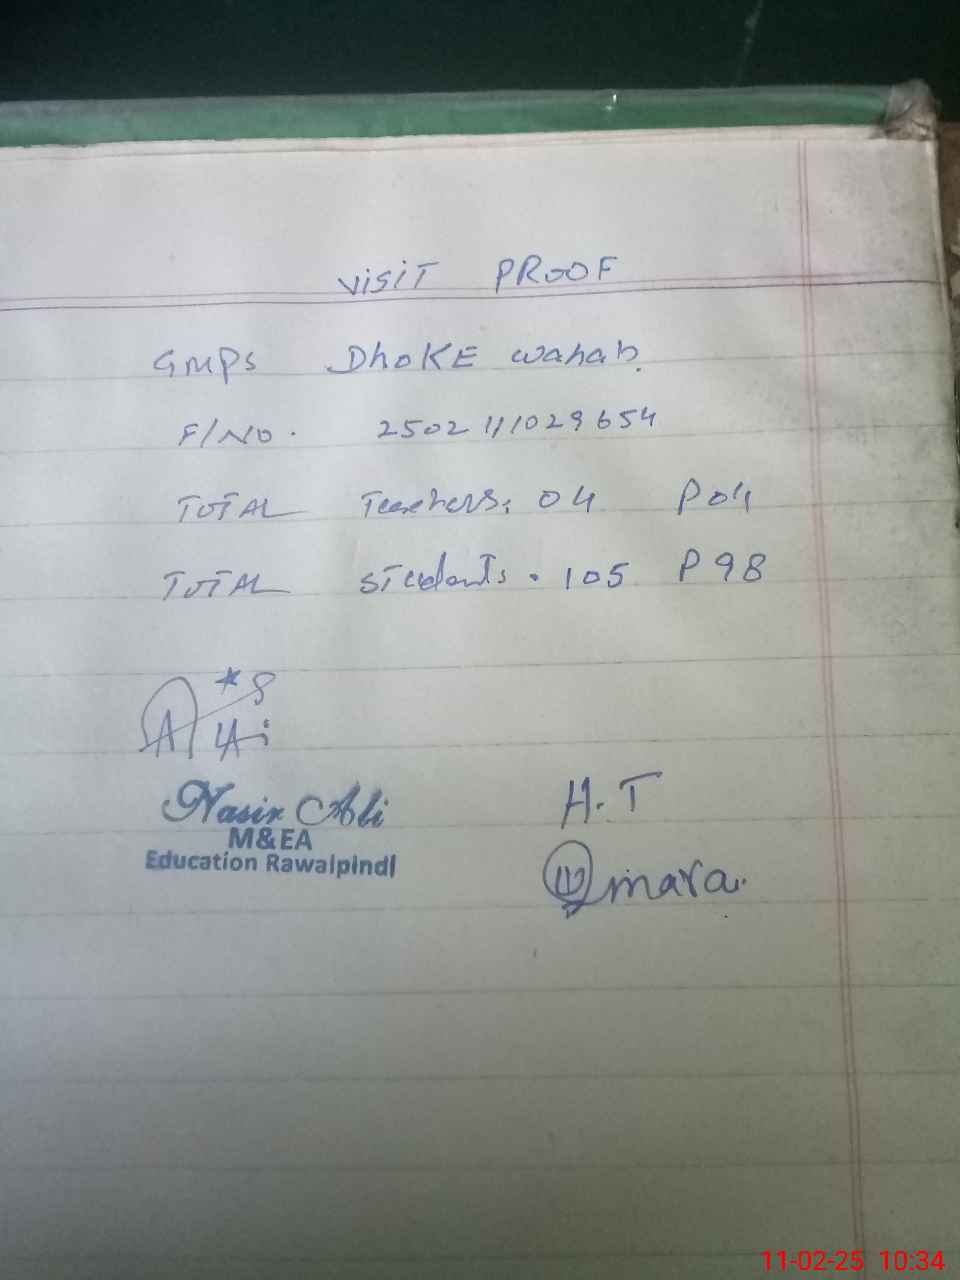 VISIT PROOF
GMPS DHOKE Wahab.
F/NO. 2502111029654
TOTAL Teachers. 04 P 04
TOTAL Students. 105 P 98
Nasir Ali
M&EA
Education Rawalpindi
H.T
11-02-25 10:34